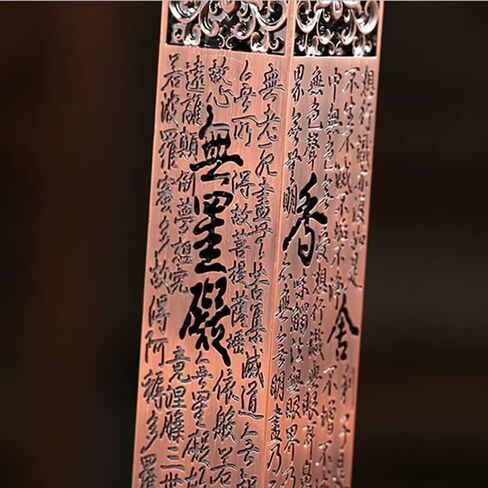 想行識亦復如是舍利子是
不生不滅不垢不淨不增不
中無色無受想行識無眼耳鼻
無色聲香味觸法無眼界乃
界無無明亦無無明盡乃
無老死盡無苦集滅道無智
亦無所得故菩提薩埵依般若
故心無罣礙無罣礙
遠離顛倒夢想究竟涅槃三世
若波羅蜜多故得阿耨多羅